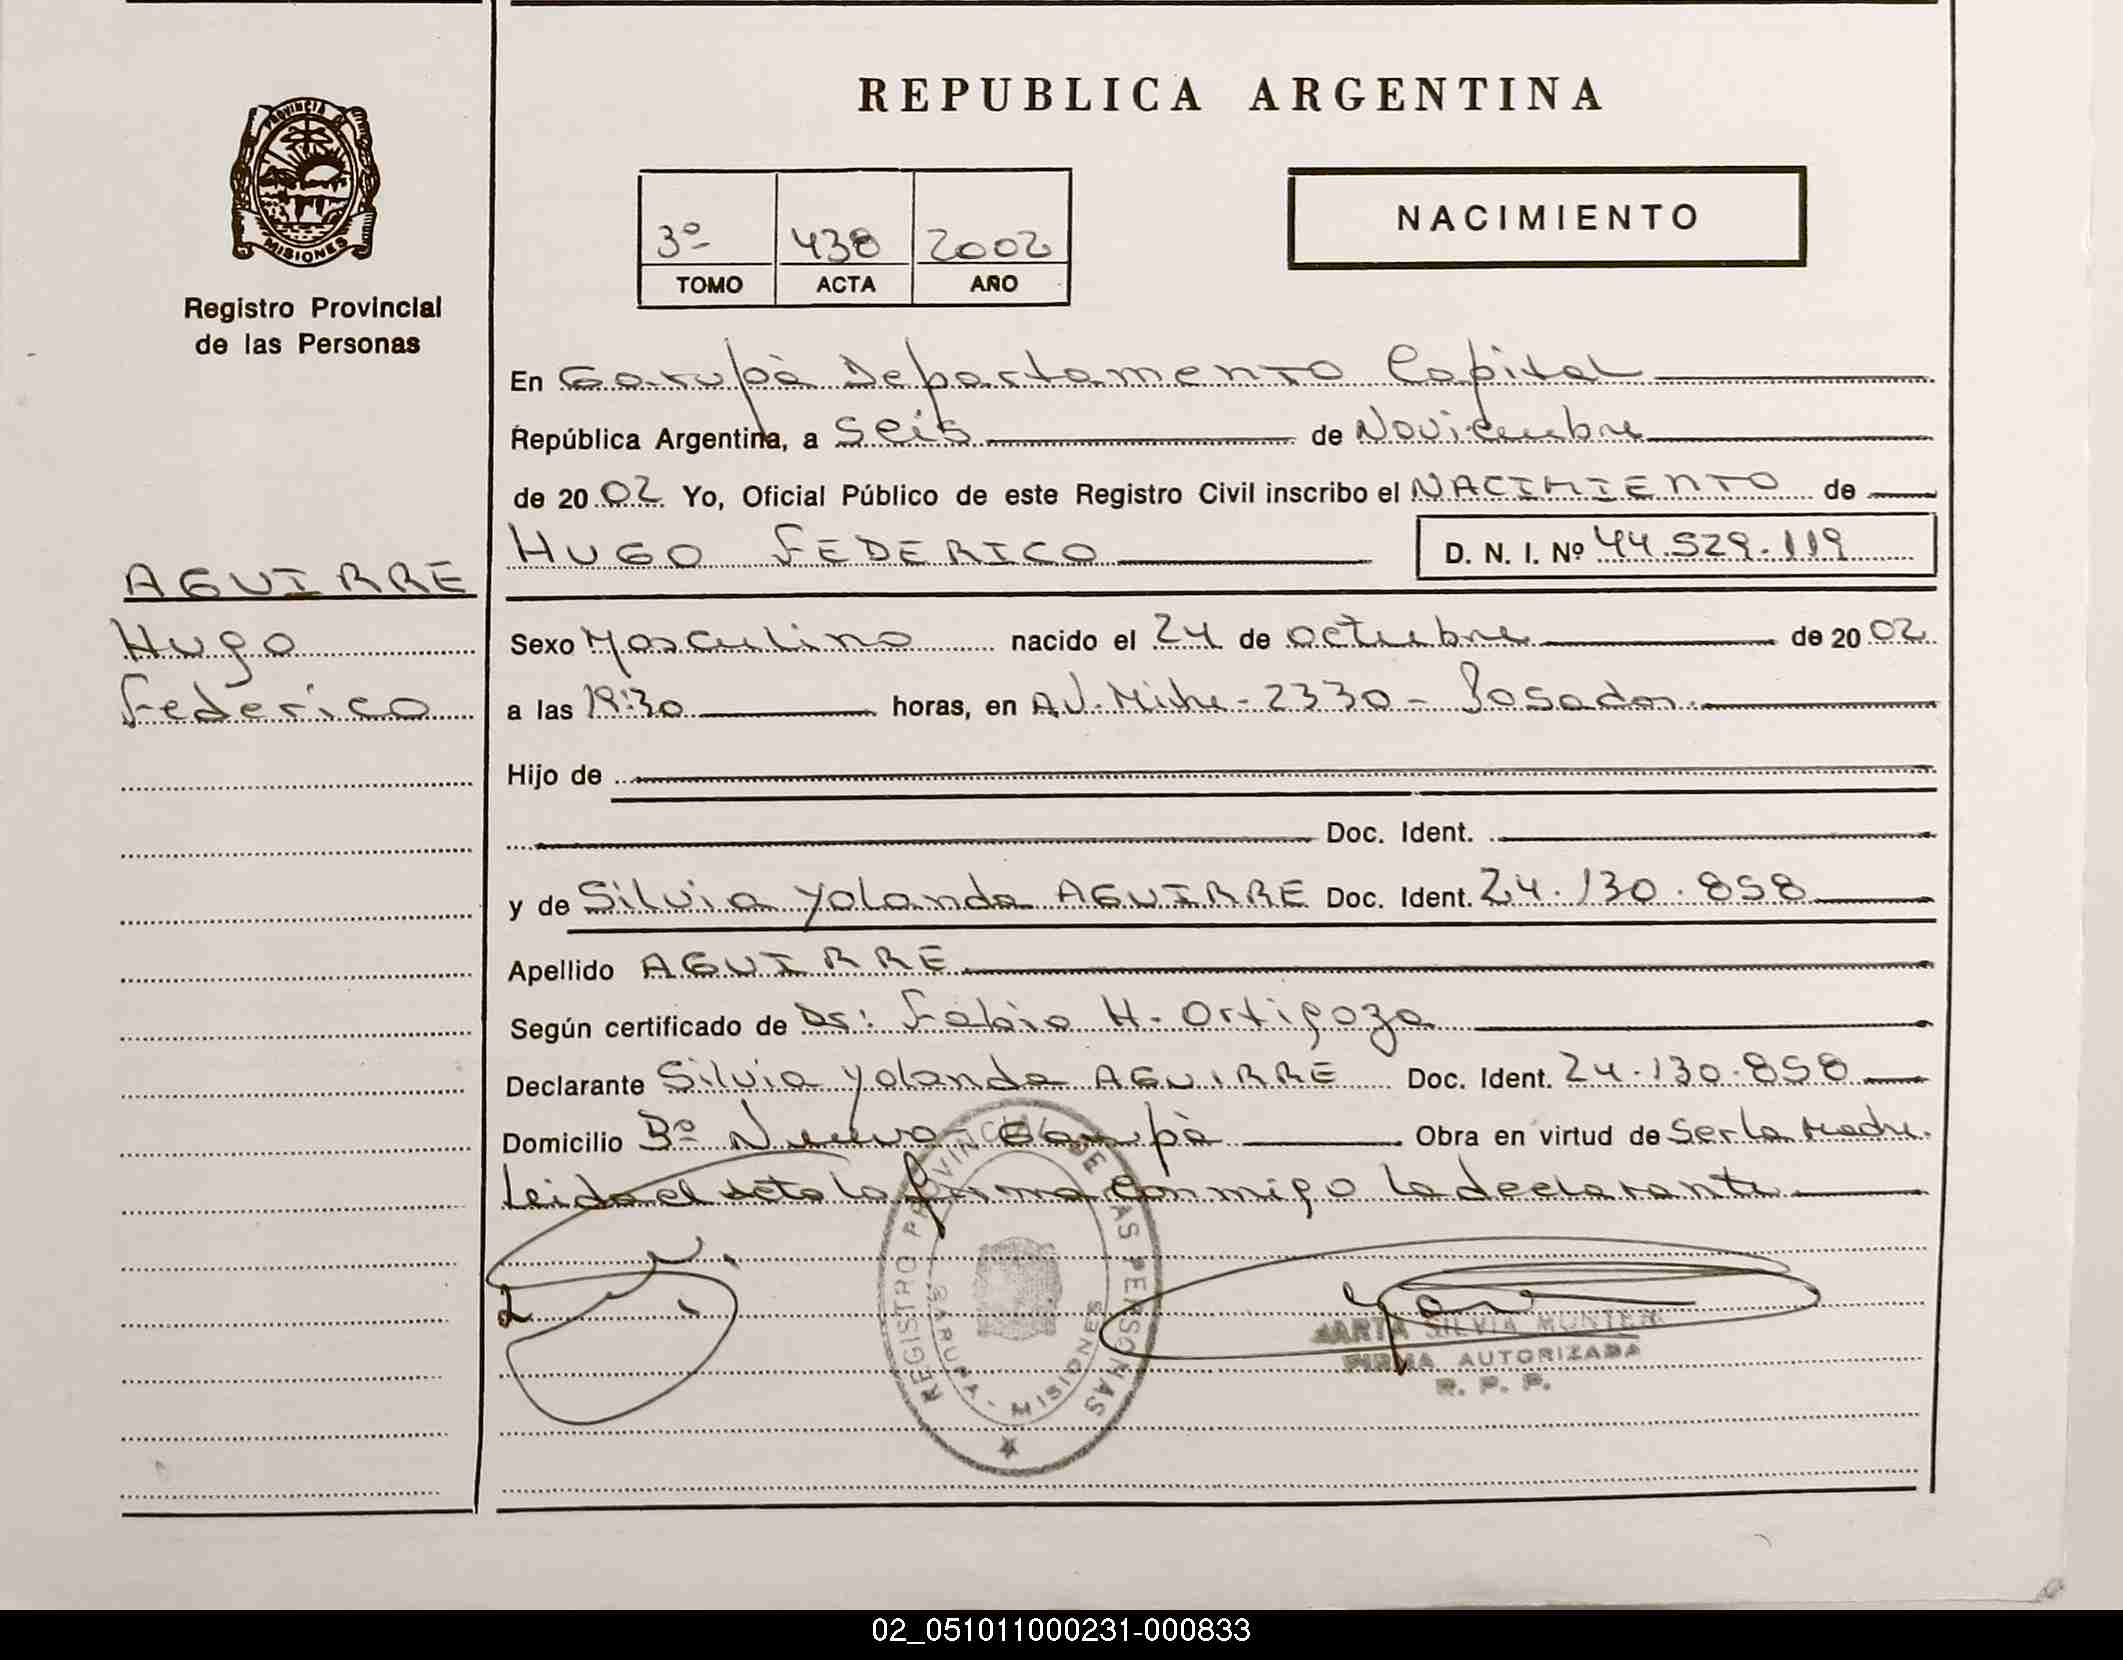 REPUBLICA ARGENTINA
PROVINCIA DE
MISIONES
Registro Provincial
de las Personas
3º 438 2002
TOMO ACTA AÑO
NACIMIENTO
AGUIRRE
Hugo
Federico
En Garupà Departamento Capital
República Argentina, a seis de Noviembre
de 2002 Yo, Oficial Público de este Registro Civil inscribo el NACIMIENTO de
HUGO FEDERICO D. N. I. Nº 44.529.119
Sexo Masculino nacido el 24 de octubre de 2002
a las 19:30 horas, en AV. Mitre - 2330 - Posadas.
Hijo de
Doc. Ident.
y de Silvia Yolanda AGUIRRE Doc. Ident. 24.130.858
Apellido AGUIRRE
Según certificado de Dr: Fabio H. Ortigoza
Declarante Silvia Yolanda AGUIRRE Doc. Ident. 24.130.858
Domicilio Bº Nuevo - Garupà Obra en virtud de ser la Madre.
Leida el acta la firma conmigo la declarante
REGISTRO PROVINCIAL DE LAS PERSONAS
GARUPA - MISIONES
MARTA SILVIA MUNTER
FIRMA AUTORIZADA
R. P. P.
02_051011000231-000833